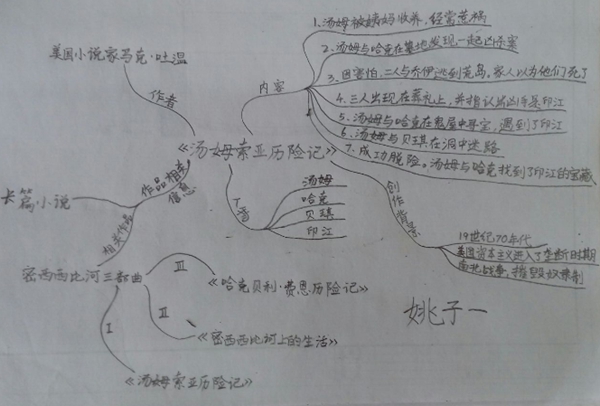 美国小说家马克·吐温
作者
《汤姆索亚历险记》
内容
1、汤姆被姨妈收养，经常荒祸
2、汤姆与哈克在墓地发现一起凶杀案
3、因害怕，二人与乔伊逃到荒岛，家人以为他们死了
4、三人出现在葬礼上，并指认凶手是印江
5、汤姆与哈克在鬼屋中寻宝，遇到了印江
6、汤姆与贝琪在洞中迷路
7、成功脱险。汤姆与哈克找到了印江的宝藏
人物
汤姆
哈克
贝琪
印江
创作背景
19世纪70年代
美国资本主义进入了垄断时期
南北战争，摧毁奴隶制
作品相关
信息
长篇小说
相关作品
密西西比河三部曲
III
《哈克贝利·费恩历险记》
II
《密西西比河上的生活》
I
《汤姆索亚历险记》
姚子一